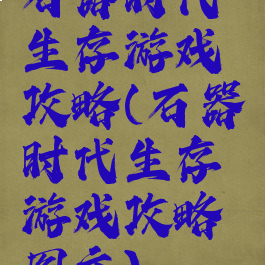 石器时代
生存游戏
攻略(石器
时代生存
游戏攻略
图文)